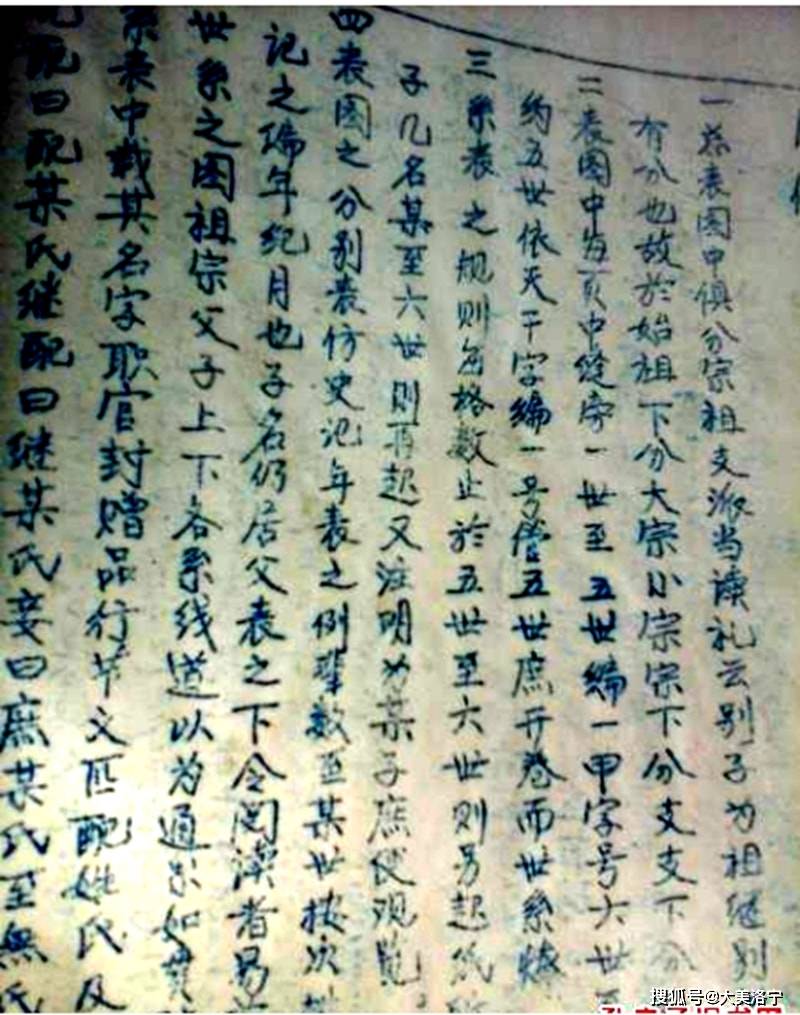 一兹表图中俱分宗祖支派当读礼云别子为祖继别
有分也故於始祖下分大宗小宗宗下分支支下分
二表图中每页中缝旁一世至五世编一甲字号六世
约五世依天干字编一号管五世庶开卷而世系燎
三系表之规则每格数止於五世至六世则另起纸
子几名某至六世则再起又注明为某子庶便观览。
四表图之分别表仿史记年表之例辈数至某世按次
记之编年纪月也子名仍居父表之下令阅读者易
世系之图祖宗父子上下各系线道以为通宗如贯
系表中载其名字职官封赠品行节文匹配姓氏及
配曰配某氏继配曰继某氏妾曰庶某氏至无氏
搜狐号@大美洛宁